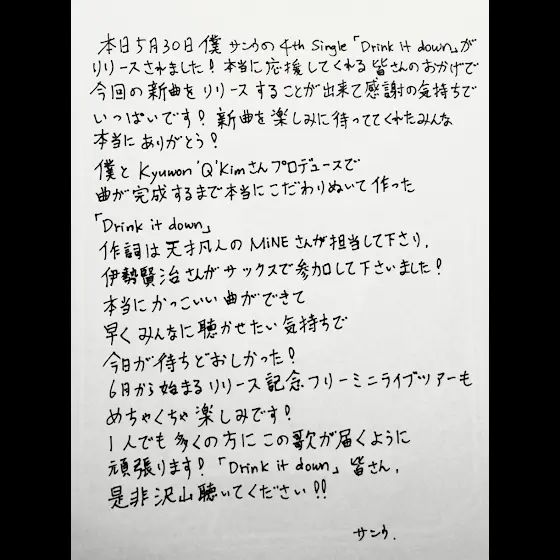 本日5月30日僕 サンウの 4th Single「Drink it down」が
リリースされました！本当に応援してくれる皆さんのおかげで
今回の新曲をリリースすることが出来て感謝の気持ちで
いっぱいです！新曲を楽しみに待っててくれたみんな
本当にありがとう！
僕と Kyuwon 'Q' Kimさんプロデュースで
曲が完成するまで本当にこだわりぬいて作った
「Drink it down」
作詞は天才凡人のMiNEさんが担当して下さり、
伊勢賢治さんがサックスで参加して下さいました！
本当にかっこいい曲ができて
早くみんなに聴かせたい気持ちで
今日が待ちどおしかった！
6月から始まるリリース記念フリーミニライブツアーも
めちゃくちゃ楽しみです！
1人でも多くの方にこの歌が届くように
頑張ります！「Drink it down」皆さん、
是非沢山聴いてください!!
サンウ.